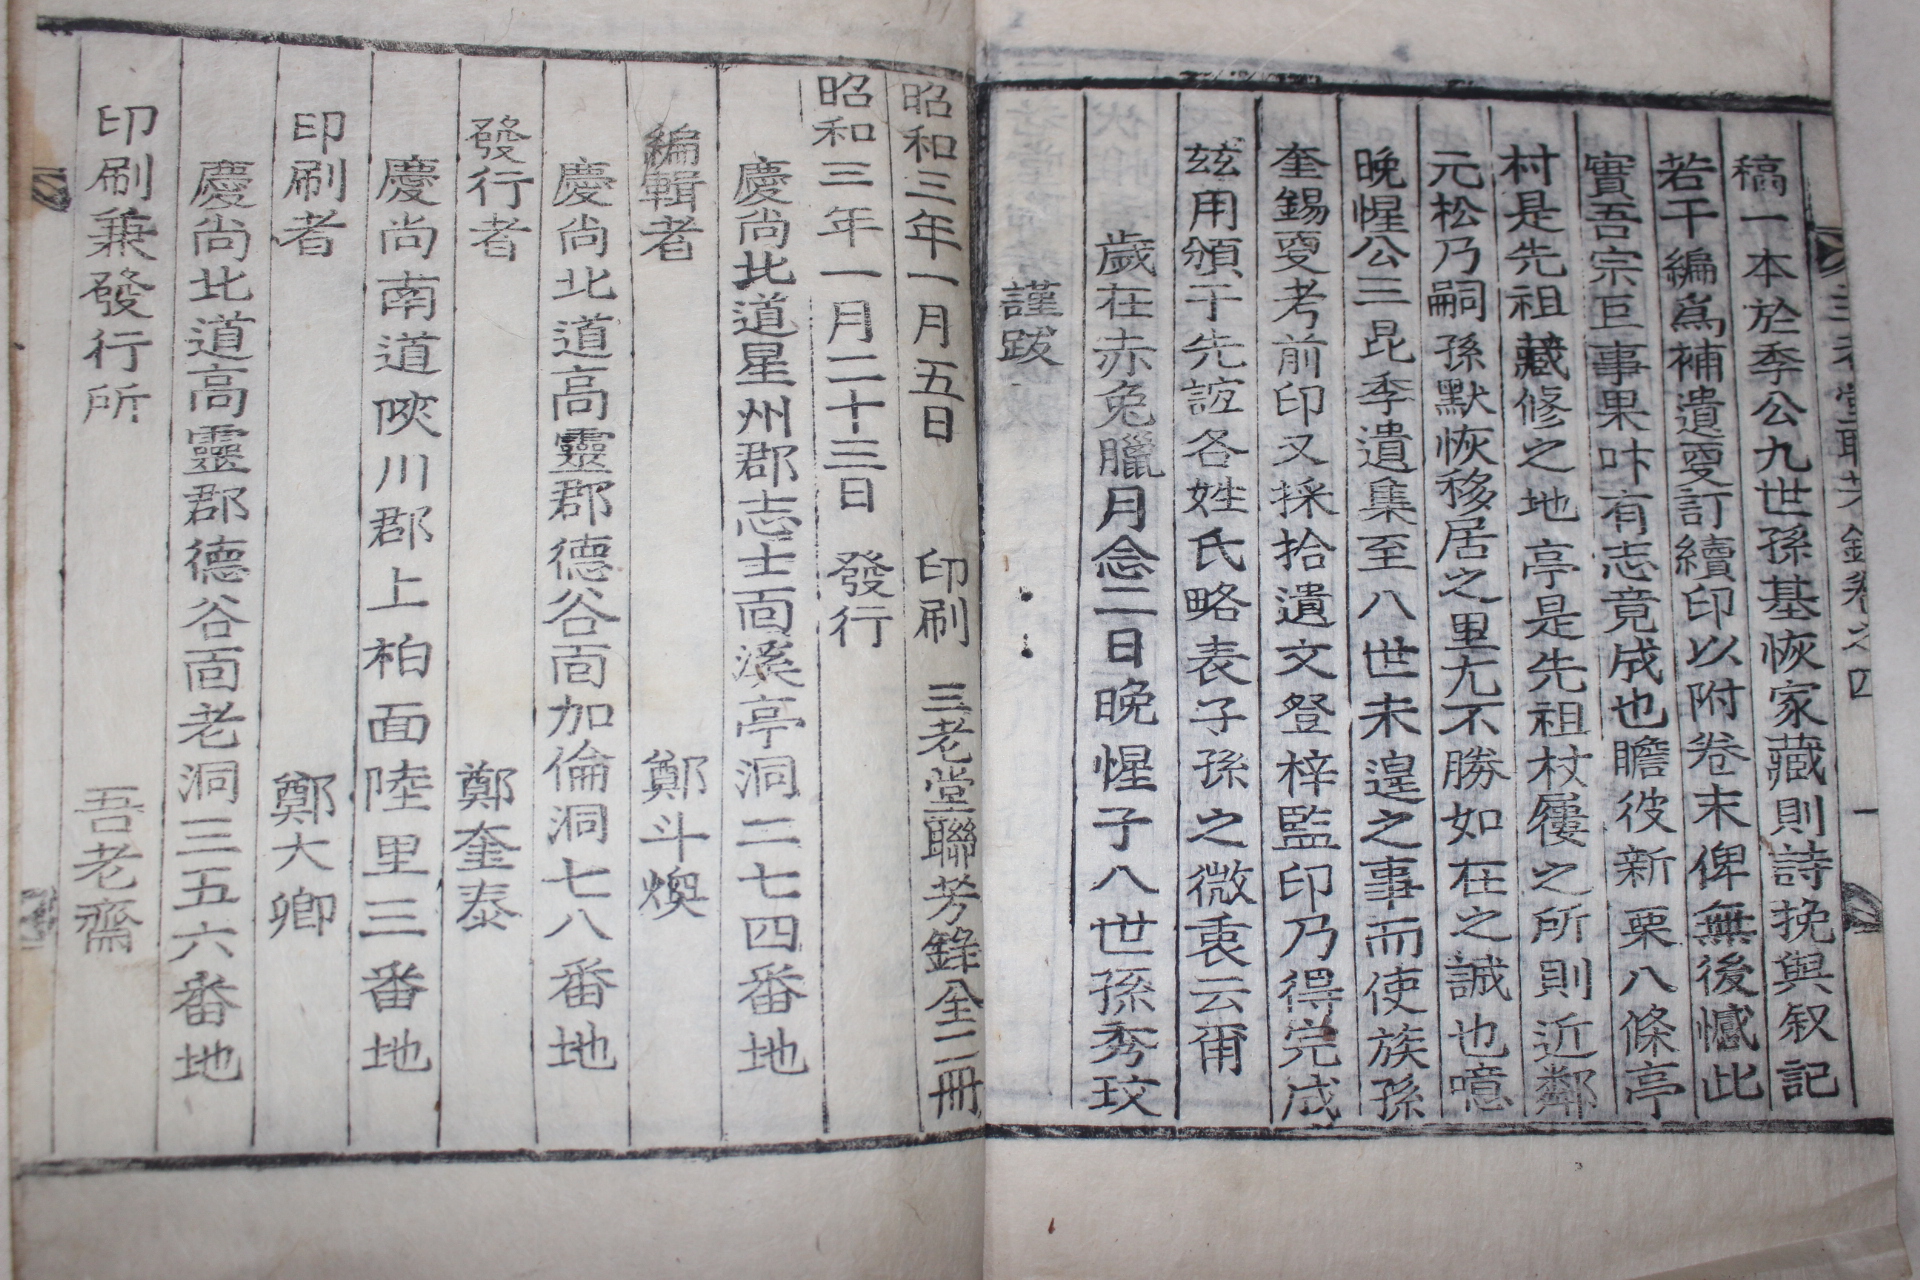 稿一本於季公九世孫基恢家藏則詩挽與叙記
若干編爲補遺更訂續印以附卷末俾無後憾此
實吾宗巨事果叶有志竟成也瞻彼新栗八條亭
村是先祖藏修之地亭是先祖杖屨之所則近鄰
元松乃嗣孫默恢移居之里尤不勝如在之誠也噫
晩惺公三昆季遺集至八世未遑之事而使族孫
奎錫更考前印又採拾遺文登梓監印乃得完成
玆用頒于先誼各姓氏略表子孫之微衷云爾
歲在赤兔臘月念二日晩惺子八世孫秀玟
謹跋
三老堂聯芳錄卷之四
一
昭和三年一月五日 印刷 三老堂聯芳錄全二冊
昭和三年一月二十三日 發行
慶尙北道星州郡志士面溪亭洞二七四番地
編輯者 鄭斗煥
慶尙北道高靈郡德谷面加倫洞七八番地
發行者 鄭奎泰
慶尙南道陜川郡上柏面陸里三番地
印刷者 鄭大卿
慶尙北道高靈郡德谷面老洞三五六番地
印刷兼發行所 吾老齋